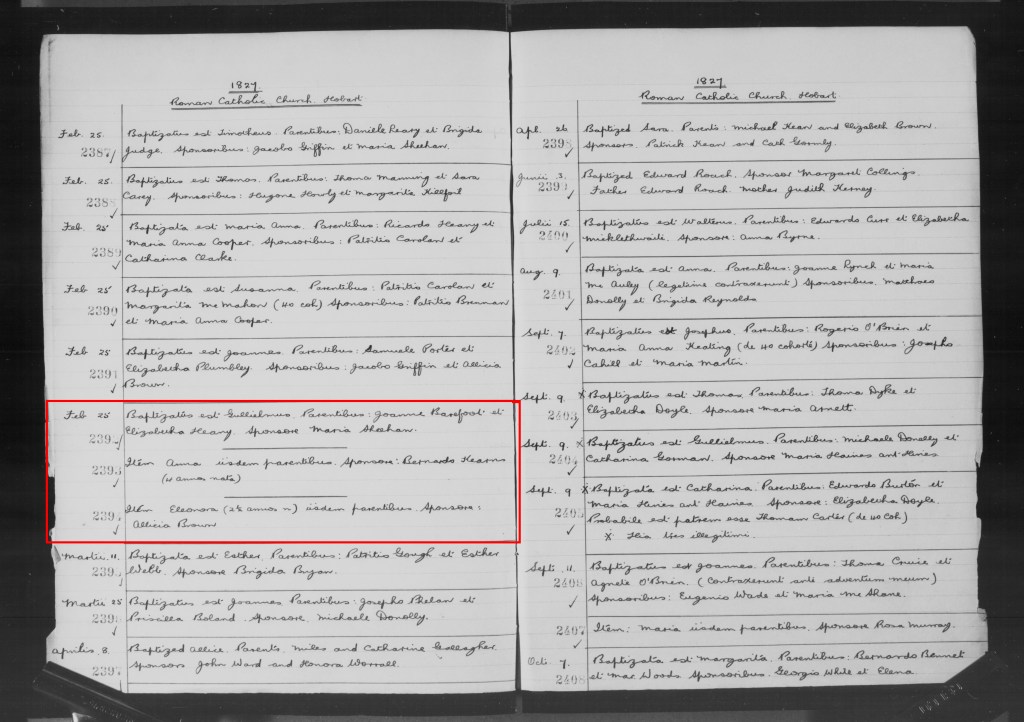 1827
Roman Catholic Church. Hobart
Feb. 25. Baptizatus est Timotheus. Parentibus: Daniele Leary et Brigida
2387 Judge. Sponsoribus: Jacobo Griffin et Maria Sheehan.
Feb. 25. Baptizatus est Thomas. Parentibus: Thoma Manning et Sara
2388 Carey. Sponsoribus: Hugone et Margarita
Feb. 25 Baptizata est Maria Anna. Parentibus: Ricardo Heavy et
Maria Anna Cooper. Sponsoribus: Patritio Carolan et
2389 Catharina Clarke.
Feb 25 Baptizata est Susanna. Parentibus: Patritio Carolan et
2390 Margarita Mc Mahon (40 coh) Sponsoribus: Patritio Brennan
et Maria Anna Cooper.
Feb 25 Baptizatus est Joannes. Parentibus: Samuele Porter et
2391 Elizabetha Plumbley. Sponsoribus: Jacobo Griffin et Allicia
Brown.
Feb 25 Baptizatus est Gullielmus. Parentibus: Joanne Barefoot et
239 Elizabetha Heany. Sponsore Maria Sheehan.
2393 Item Anna iisdem parentibus. Sponsore: Bernardo Kearns
(4 annos nata)
239 Item Eleanora (2½ annos n) iisdem parentibus. Sponsore:
Allicia Brown
Martii 11. Baptizata est Esther. Parentibus: Patritio Gough et Esther
239 Webb. Sponsore Brigida Bryan.
Martii 25 Baptizatus est Joannes Parentibus: Josepho Phelan et
239 Priscilla Boland. Sponsore, Michaele Donolly.
Aprilis 8. Baptized Allice. Parents, Miles and Catharine Gallagher.
2397 Sponsors John Ward and Honora Worrall.
1827
Roman Catholic Church. Hobart
Apl. 26 Baptized Sara. Parents: Michael Kean and Elizabeth Brown.
2398 Sponsors. Patrick Kean and Cath Gormly.
Junii 3. Baptized Edward Roach. Sponsor Margaret Collings.
2399 Father Edward Roach. Mother Judith Kerney.
Julii 15. Baptizatus est Walterus. Parentibus: Edwardo Curr et Elizabetha
2400 Micklethwaite. Sponsore: Anna Byrne.
Aug. 9. Baptizata est Anna. Parentibus: Joanne Lynch et Maria
2401 Mc Auley (legitime contraxerunt) Sponsoribus. Matthaeo
Donolly et Brigida Reynolds
Sept. 7. Baptizatus est Josephus. Parentibus: Rogerio O'Brien et
2402 Maria Anna Keating (de 40 cohorte) Sponsoribus: Josepho
Cahill et Maria Martin.
Sept. 9. X Baptizatus est Thomas Parentibus: Thoma Dyke et
2403 Elizabetha Doyle. Sponsore Maria Arnett.
Sept. 9. X Baptizatus est Gullielmus. Parentibus: Michaele Donolly et
2404 Catharina Gorman. Sponsore Maria Haines aut Hines
Sept. 9 X Baptizata est Catharina. Parentibus: Edwardo Burton et
2405 Maria Hines aut Haines. Sponsore: Elizabetha Doyle.
Probabile est patrem esse Thomam Carter (de 40 Coh)
X Hia tres illegitimi.
Sept. 11. Baptizatus est Joannes. Parentibus: Thoma Cruice et
2406 Agnete O'Brien. (Contraxerunt ante adventum meum)
Sponsoribus: Eugenio Wade et Maria Mc Shane.
2407 Item: Maria iisdem parentibus. Sponsore Rosa Murray.
Oct. 7. Baptizata est Margarita. Parentibus: Bernardo Bennet
2408 et Mae Woods. Sponsoribus: Georgio White et Elena